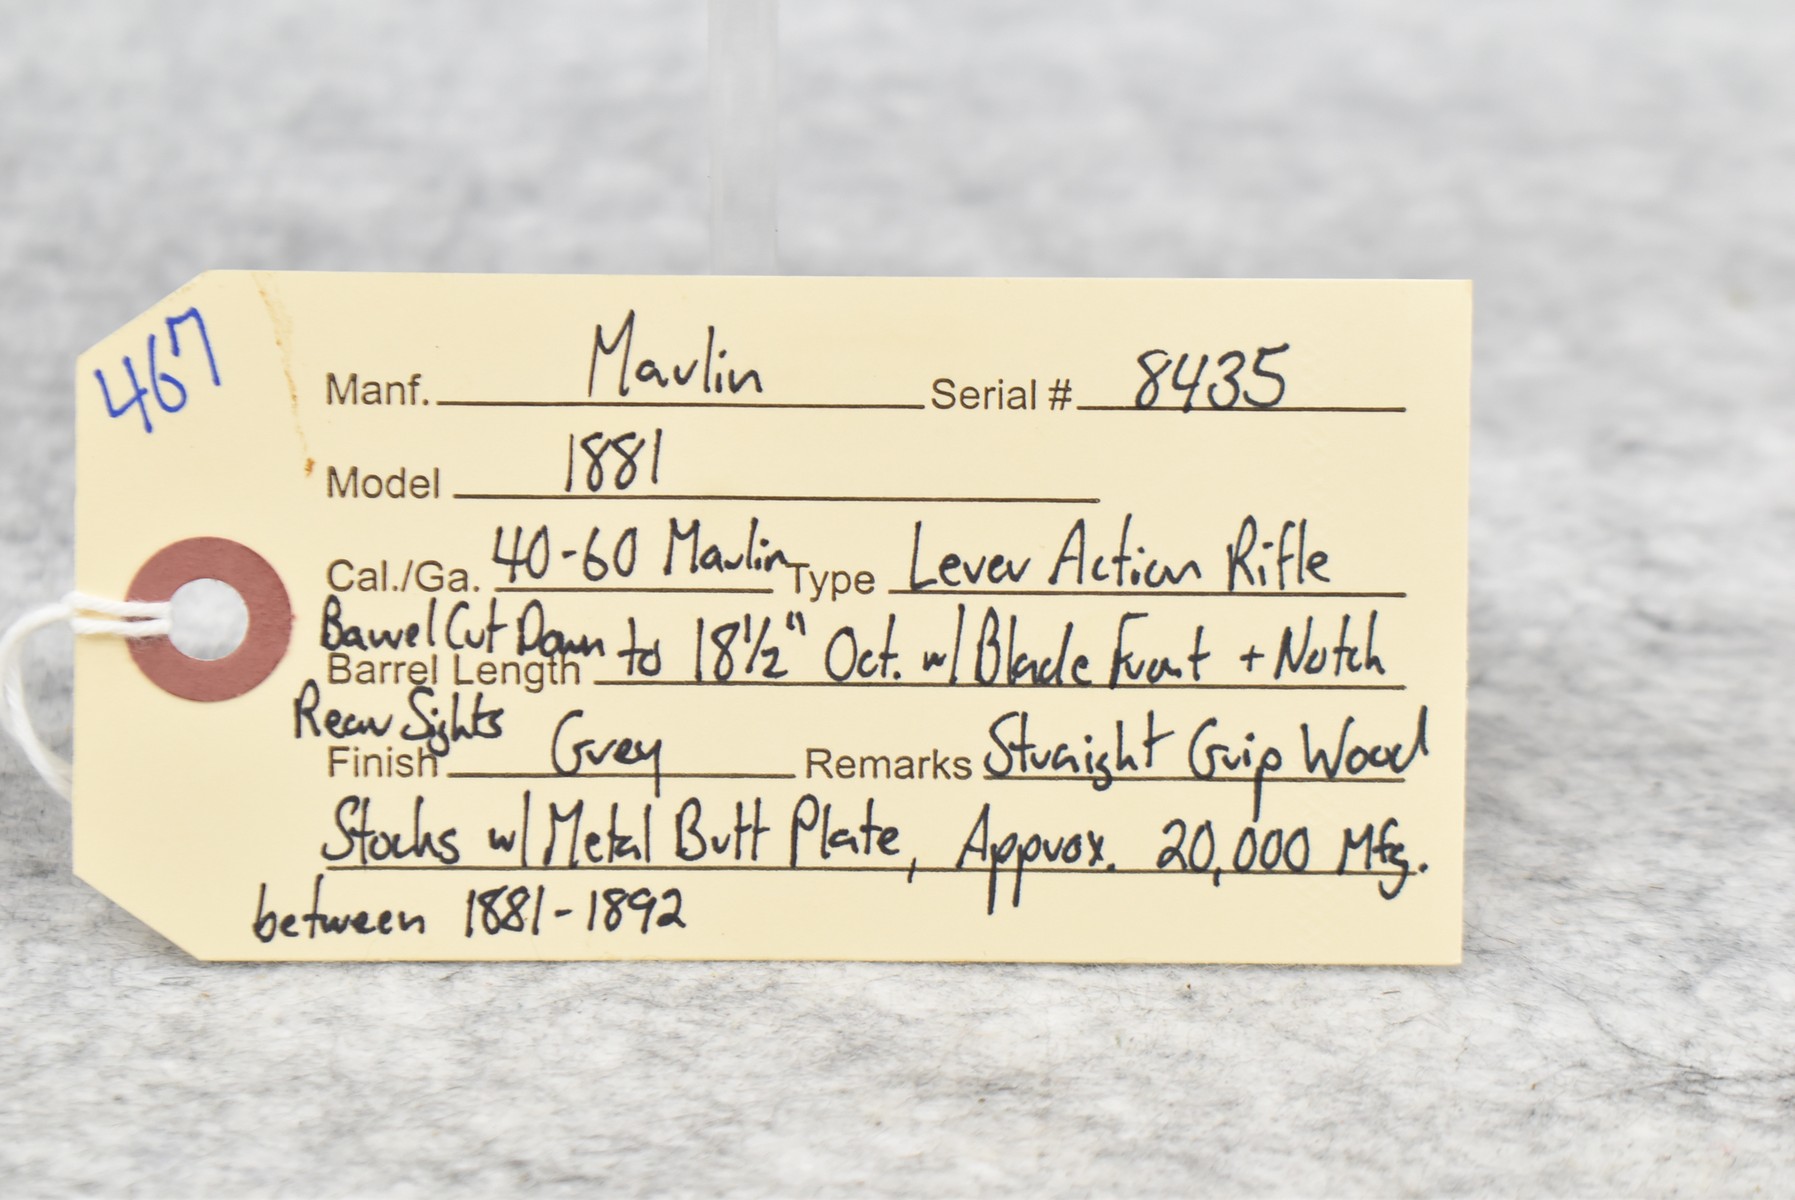 467
Manf. Marlin Serial # 8435
Model 1881
Cal./Ga. 40-60 Marlin Type Lever Action Rifle
Barrel Cut Down to 18½" Oct. w/ Blade Front + Notch
Barrel Length
Rear Sights
Finish Grey Remarks Straight Grip Wood
Stocks w/ Metal Butt Plate, Approx. 20,000 Mfg.
between 1881-1892